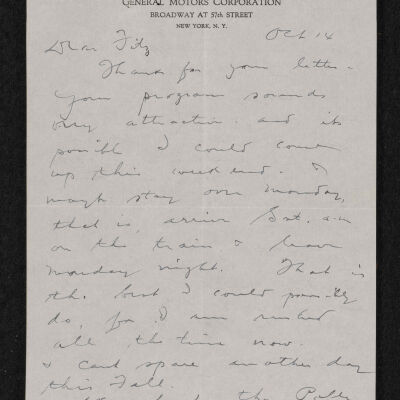 GENERAL MOTORS CORPORATION
BROADWAY AT 57th STREET
NEW YORK, N. Y.
Oct 14
Dear Fitz
Thanks for your letter -
Your program sounds
very attractive and its
possible I could come
up this week end. &
maybe stay over Monday,
that is, arrive Sat. a.m
on the train & leave
Monday night. That is
the best I could possibly
do, for I am rushed
all the time now.
& cant spare another day
this Fall.
the Polly